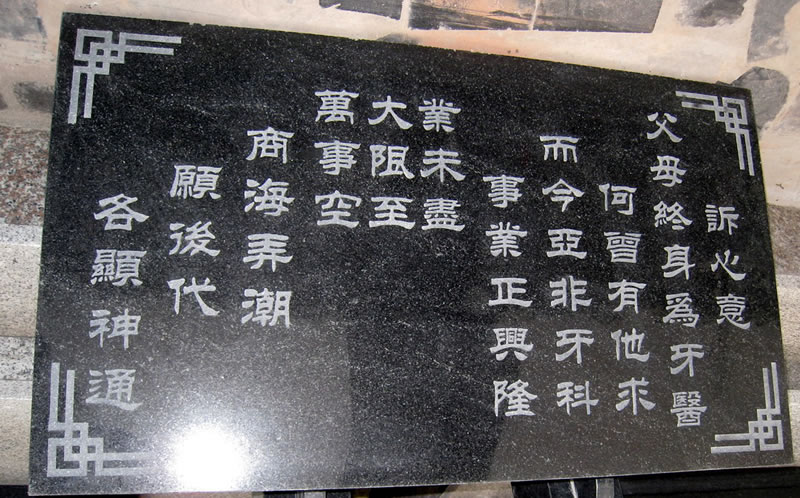 訴心意
父母終身爲牙醫
何曾有他求
而今亞非牙科
事業正興隆
業未盡
大限至
萬事空
商海弄潮
願後代
各顯神通